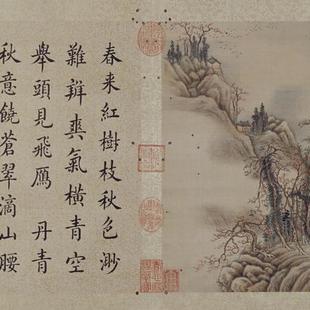 春来紅樹枝秋色渺
難辨爽氣橫青空
舉頭見飛鴈 丹青
秋意饒蒼翠滴山腰